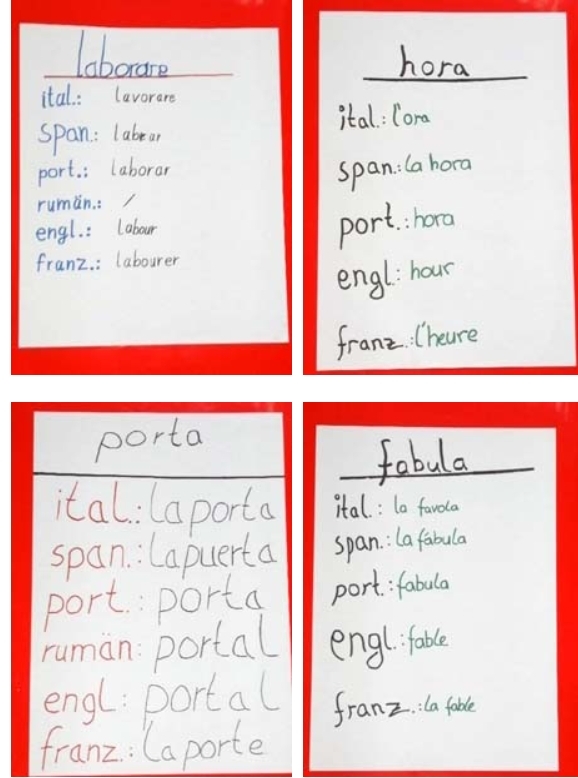 laborare
ital.: lavorare
span.: labrar
port.: laborar
rumän.: /
engl.: labour
franz.: labourer
hora
ital.: l'ora
span.: la hora
port.: hora
engl.: hour
franz.: l'heure
porta
ital.: la porta
span.: la puerta
port.: porta
rumän: portal
engl.: portal
franz.: la porte
fabula
ital.: la favola
span.: la fábula
port.: fabula
engl.: fable
franz.: la fable